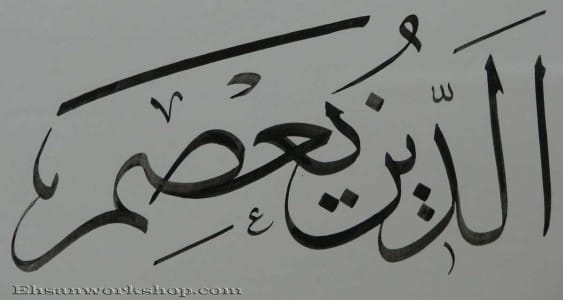 اَلدّينُ يَعْصِمُ
Ehsanworkshop.com